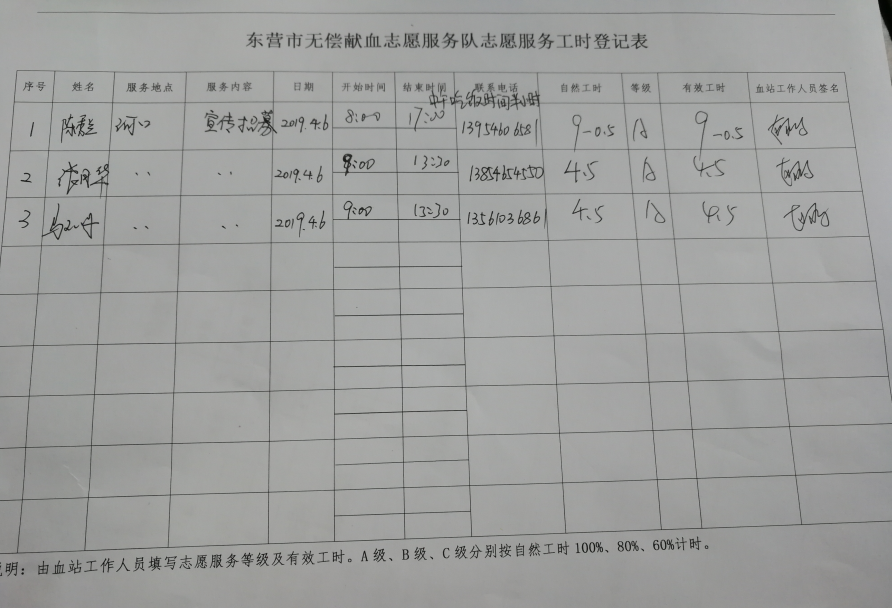 东营市无偿献血志愿服务队志愿服务工时登记表
序号 姓名 服务地点 服务内容 日期 开始时间 结束时间 联系电话 自然工时 等级 有效工时 血站工作人员签名
中午吃饭时间半小时
1 河口 宣传招募 2019.4.6 8:00 17:00 13954606581 9-0.5 A 9-0.5
2 〃 〃 2019.4.6 9:00 13:30 13854654550 4.5 A 4.5
3 〃 〃 2019.4.6 9:00 13:30 13561036861 4.5 A 4.5
明：由血站工作人员填写志愿服务等级及有效工时。A 级、B 级、C 级分别按自然工时 100%、80%、60%计时。